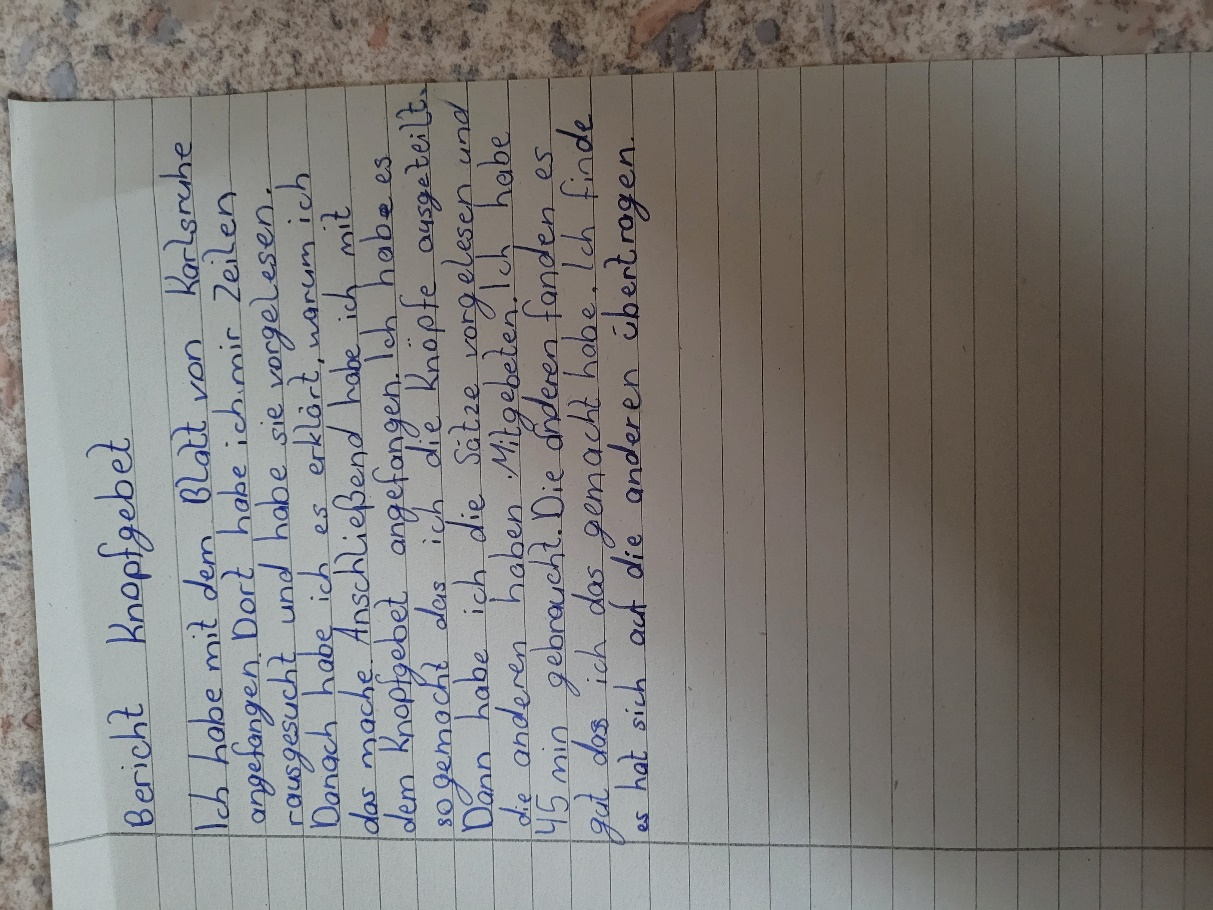 Bericht Knopfgebet
Ich habe mit dem Blatt von Karlsruhe
angefangen. Dort habe ich mir Zeilen
rausgesucht und habe sie vorgelesen.
Danach habe ich es erklärt, warum ich
das mache. Anschließend habe ich mit
dem Knopfgebet angefangen. Ich habe es
so gemacht das ich die Knöpfe ausgeteilt.
Dann habe ich die Sätze vorgelesen und
die anderen haben Mitgebeten. Ich habe
45 min gebraucht. Die anderen fanden es
gut das ich das gemacht habe. Ich finde
es hat sich auf die anderen übertragen.